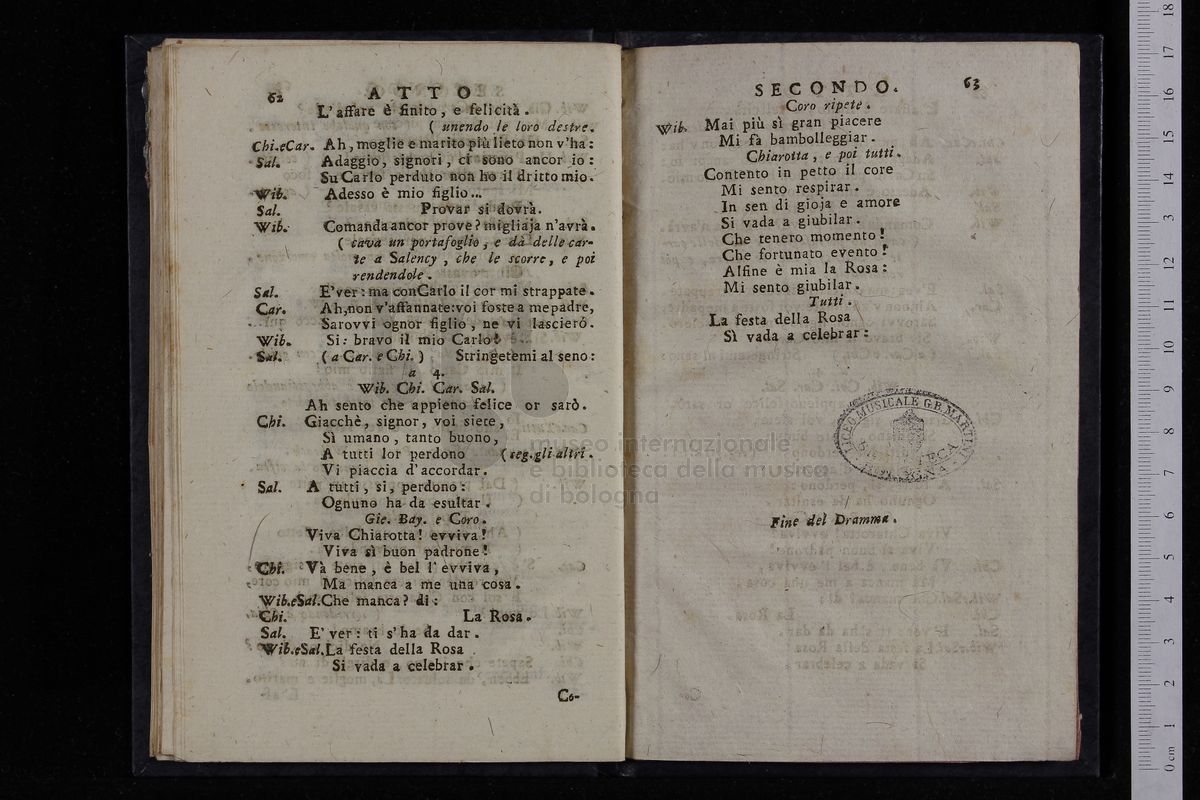 62
ATTO
L'affare è finito, e felicità.
( unendo le loro destre.
Chi.eCar. Ah, moglie e marito più lieto non v'ha:
Sal. Adaggio, signori, ci sono ancor io:
Su Carlo perduto non ho il dritto mio.
Wib. Adesso è mio figlio...
Sal. Provar si dovrà.
Wib. Comanda ancor prove? migliaja n'avrà.
( cava un portafoglio, e dà delle car-
te a Salency, che le scorre, e poi
rendendole.
Sal. E'ver: ma conCarlo il cor mi strappate.
Car. Ah,non v'affannate:voi foste a me padre,
Sarovvi ognor figlio, ne vi lascieró.
Wib. Si: bravo il mio Carlo!
Sal. ( a Car. e Chi. ) Stringetemi al seno:
a 4.
Wib. Chi. Car. Sal.
Ah sento che appieno felice or sarò.
Chi. Giacchè, signor, voi siete,
Sì umano, tanto buono,
A tutti lor perdono ( seg. gli altri.
Vi piaccia d'accordar.
Sal. A tutti, si, perdono:
Ognuno ha da esultar.
Gie. Bay. e Coro.
Viva Chiarotta! evviva!
Viva sì buon padrone!
Chi. Và bene, è bel l'evviva,
Ma manca a me una cosa.
Wib.eSal.Che manca? di:
Chi. La Rosa.
Sal. E' ver: ti s'ha da dar.
Wib.eSal.La festa della Rosa
Si vada a celebrar.
Co-
SECONDO. 63
Coro ripete.
Wib. Mai più sì gran piacere
Mi fà bambolleggiar.
Chiarotta, e poi tutti.
Contento in petto il core
Mi sento respirar.
In sen di gioja e amore
Si vada a giubilar.
Che tenero momento!
Che fortunato evento!
Alfine è mia la Rosa:
Mi sento giubilar.
Tutti.
La festa della Rosa
Sì vada a celebrar:
LICEO MUSICALE G.B. MARTINI
BIBLIOTECA
BOLOGNA
Fine del Dramma.
museo internazionale
e biblioteca della musica
di bologna
18
17
16
15
14
13
12
11
10
9
8
7
6
5
4
3
2
1
0 cm